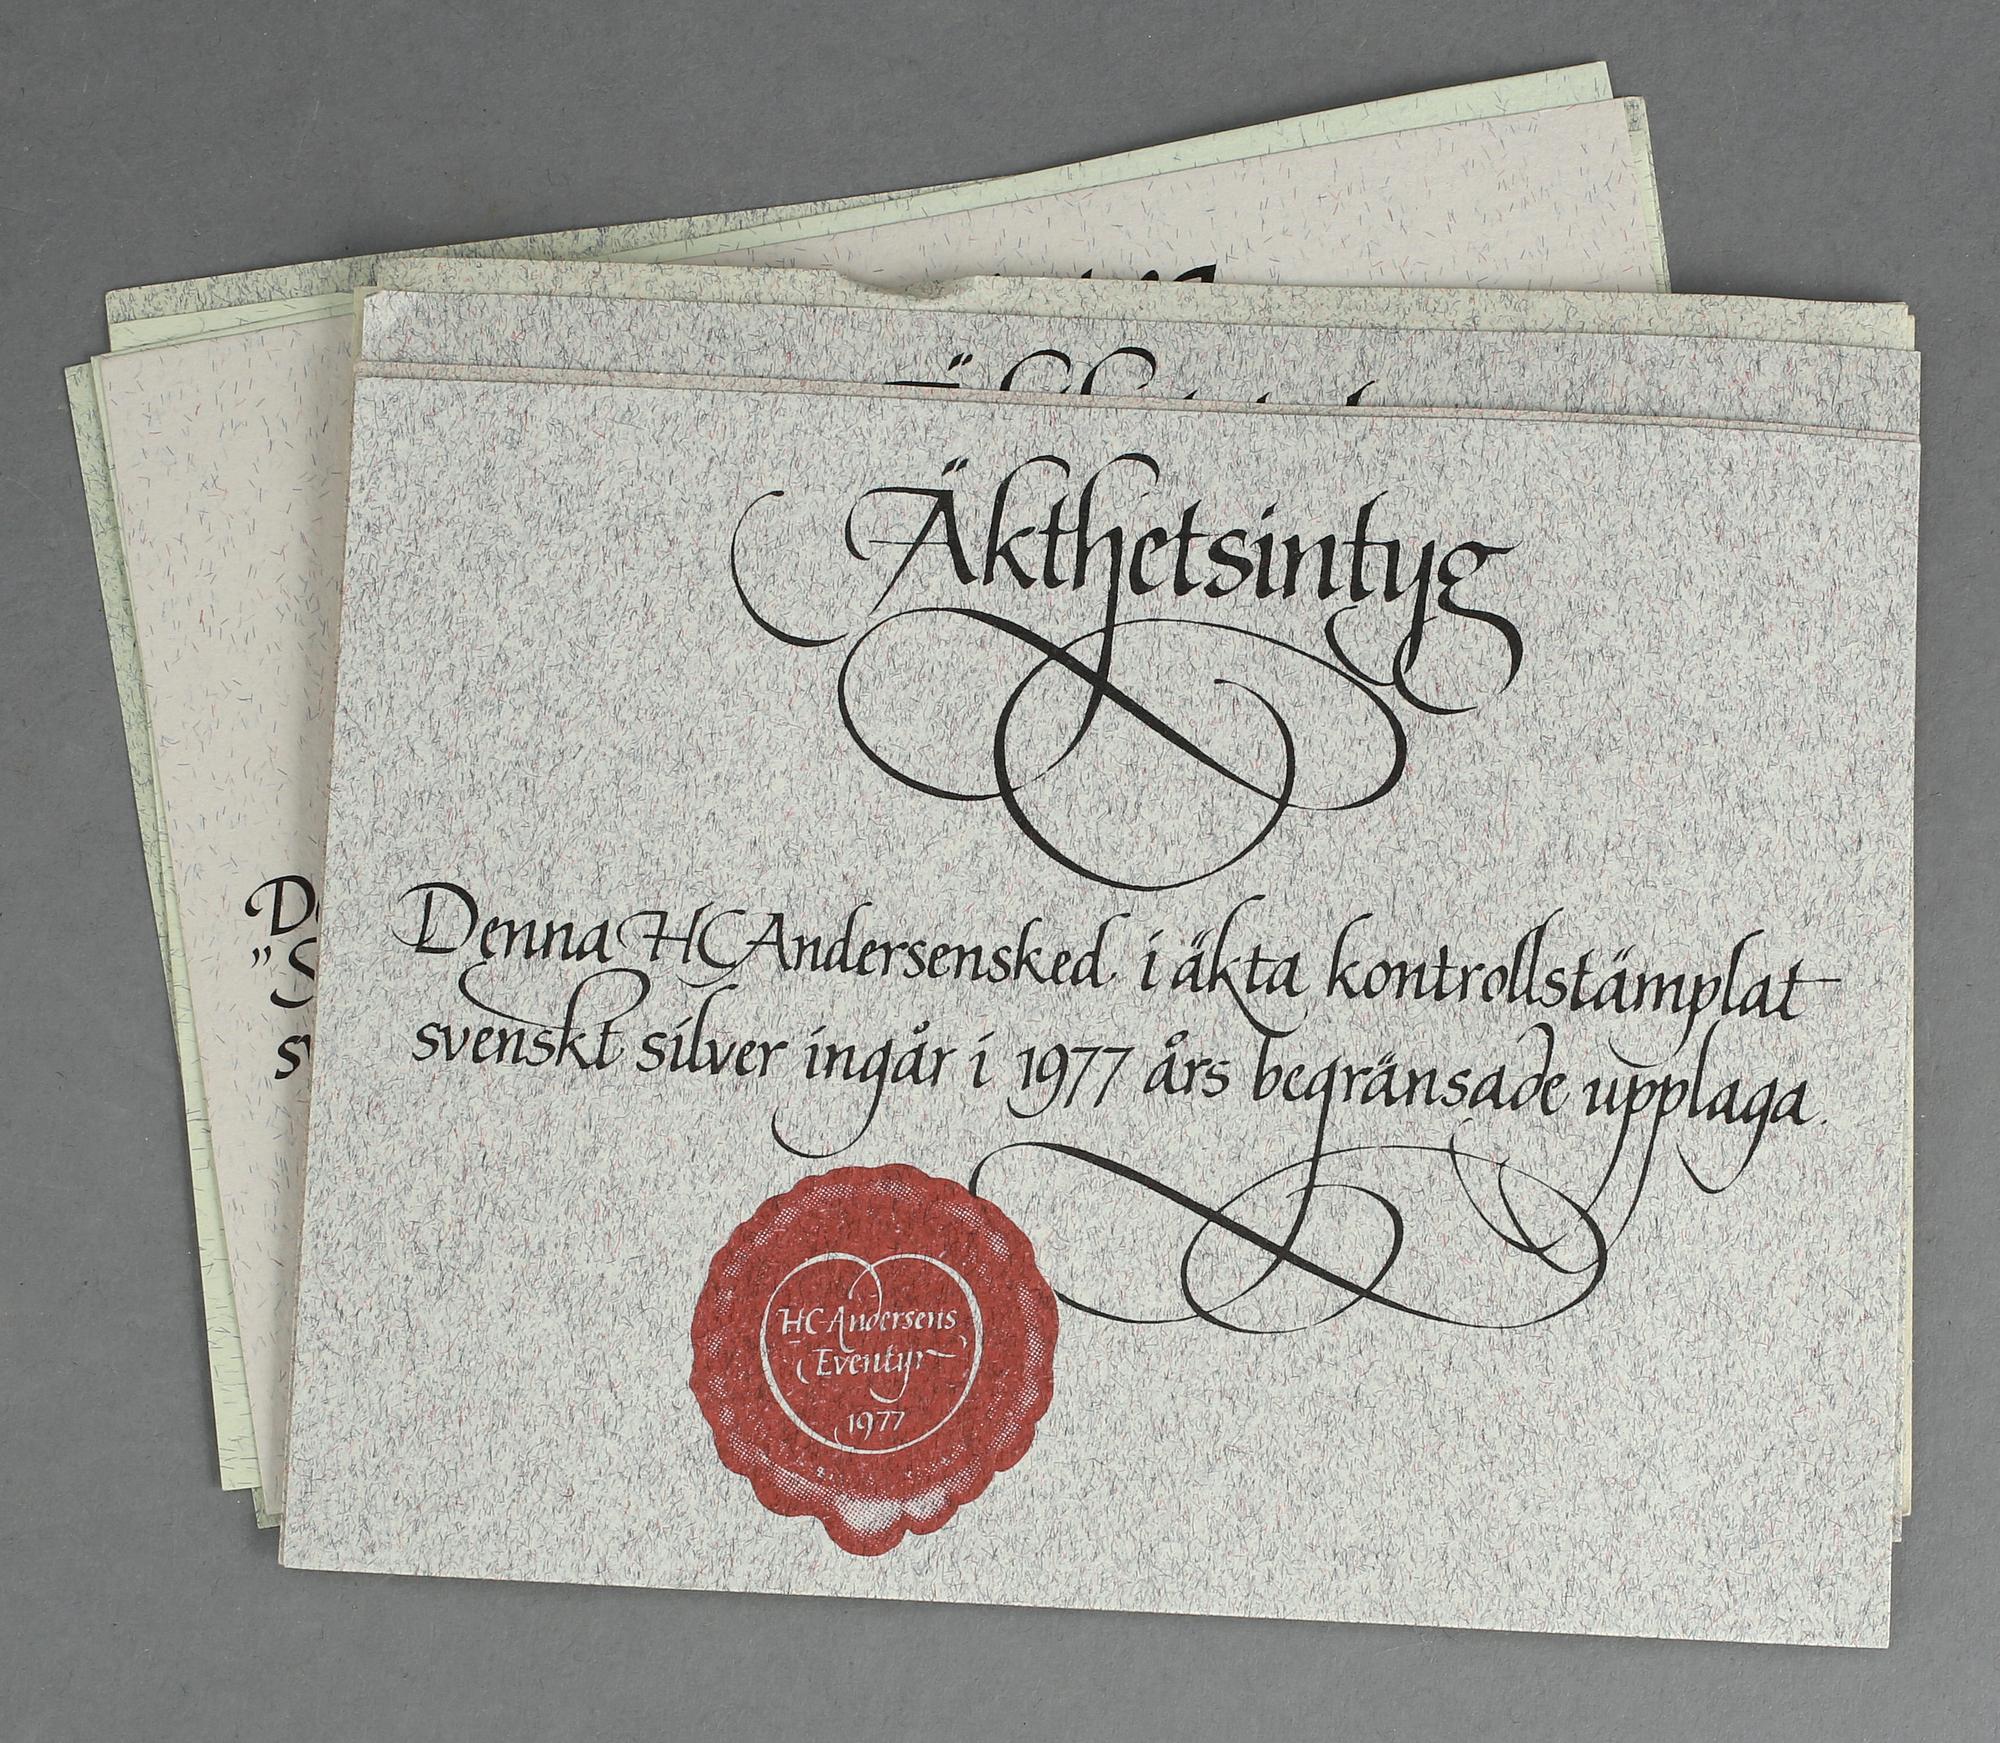 Äkthetsintyg
Denna HC Andersensked i äkta kontrollstämplat
svenskt silver ingår i 1977 års begränsade upplaga.
HC Andersens
Eventyr
1977